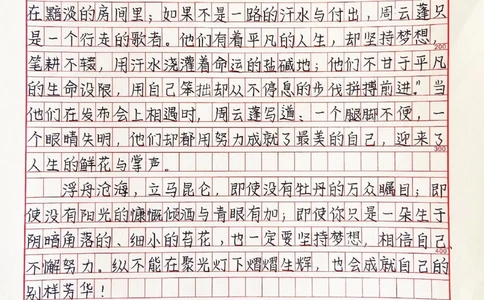 在黯淡的房间里；如果不是一路的汗水与付出，周云蓬只
是一个行走的歌者。他们有着平凡的人生，却坚持梦想，
200
笔耕不辍，用汗水浇灌着命运的盐碱地；他们不甘于平凡
的生命设限，用自己笨拙却从不停息的步伐拼搏前进。”当
他们在发布会上相遇时，周云蓬写道、一个腿脚不便，一
个眼睛失明，他们却都用努力成就了最美的自己，迎来了
300
人生的鲜花与掌声。
浮舟沧海，立马昆仑，即使没有牡丹的万众瞩目；即
使没有阳光的慷慨倾洒与青眼有加；即使你只是一朵生于
阴暗角落的、细小的苔花，也一定要坚持梦想，相信自己，
400
不懈努力。纵不能在聚光灯下熠熠生辉，也会成就自己的
别样芳华！